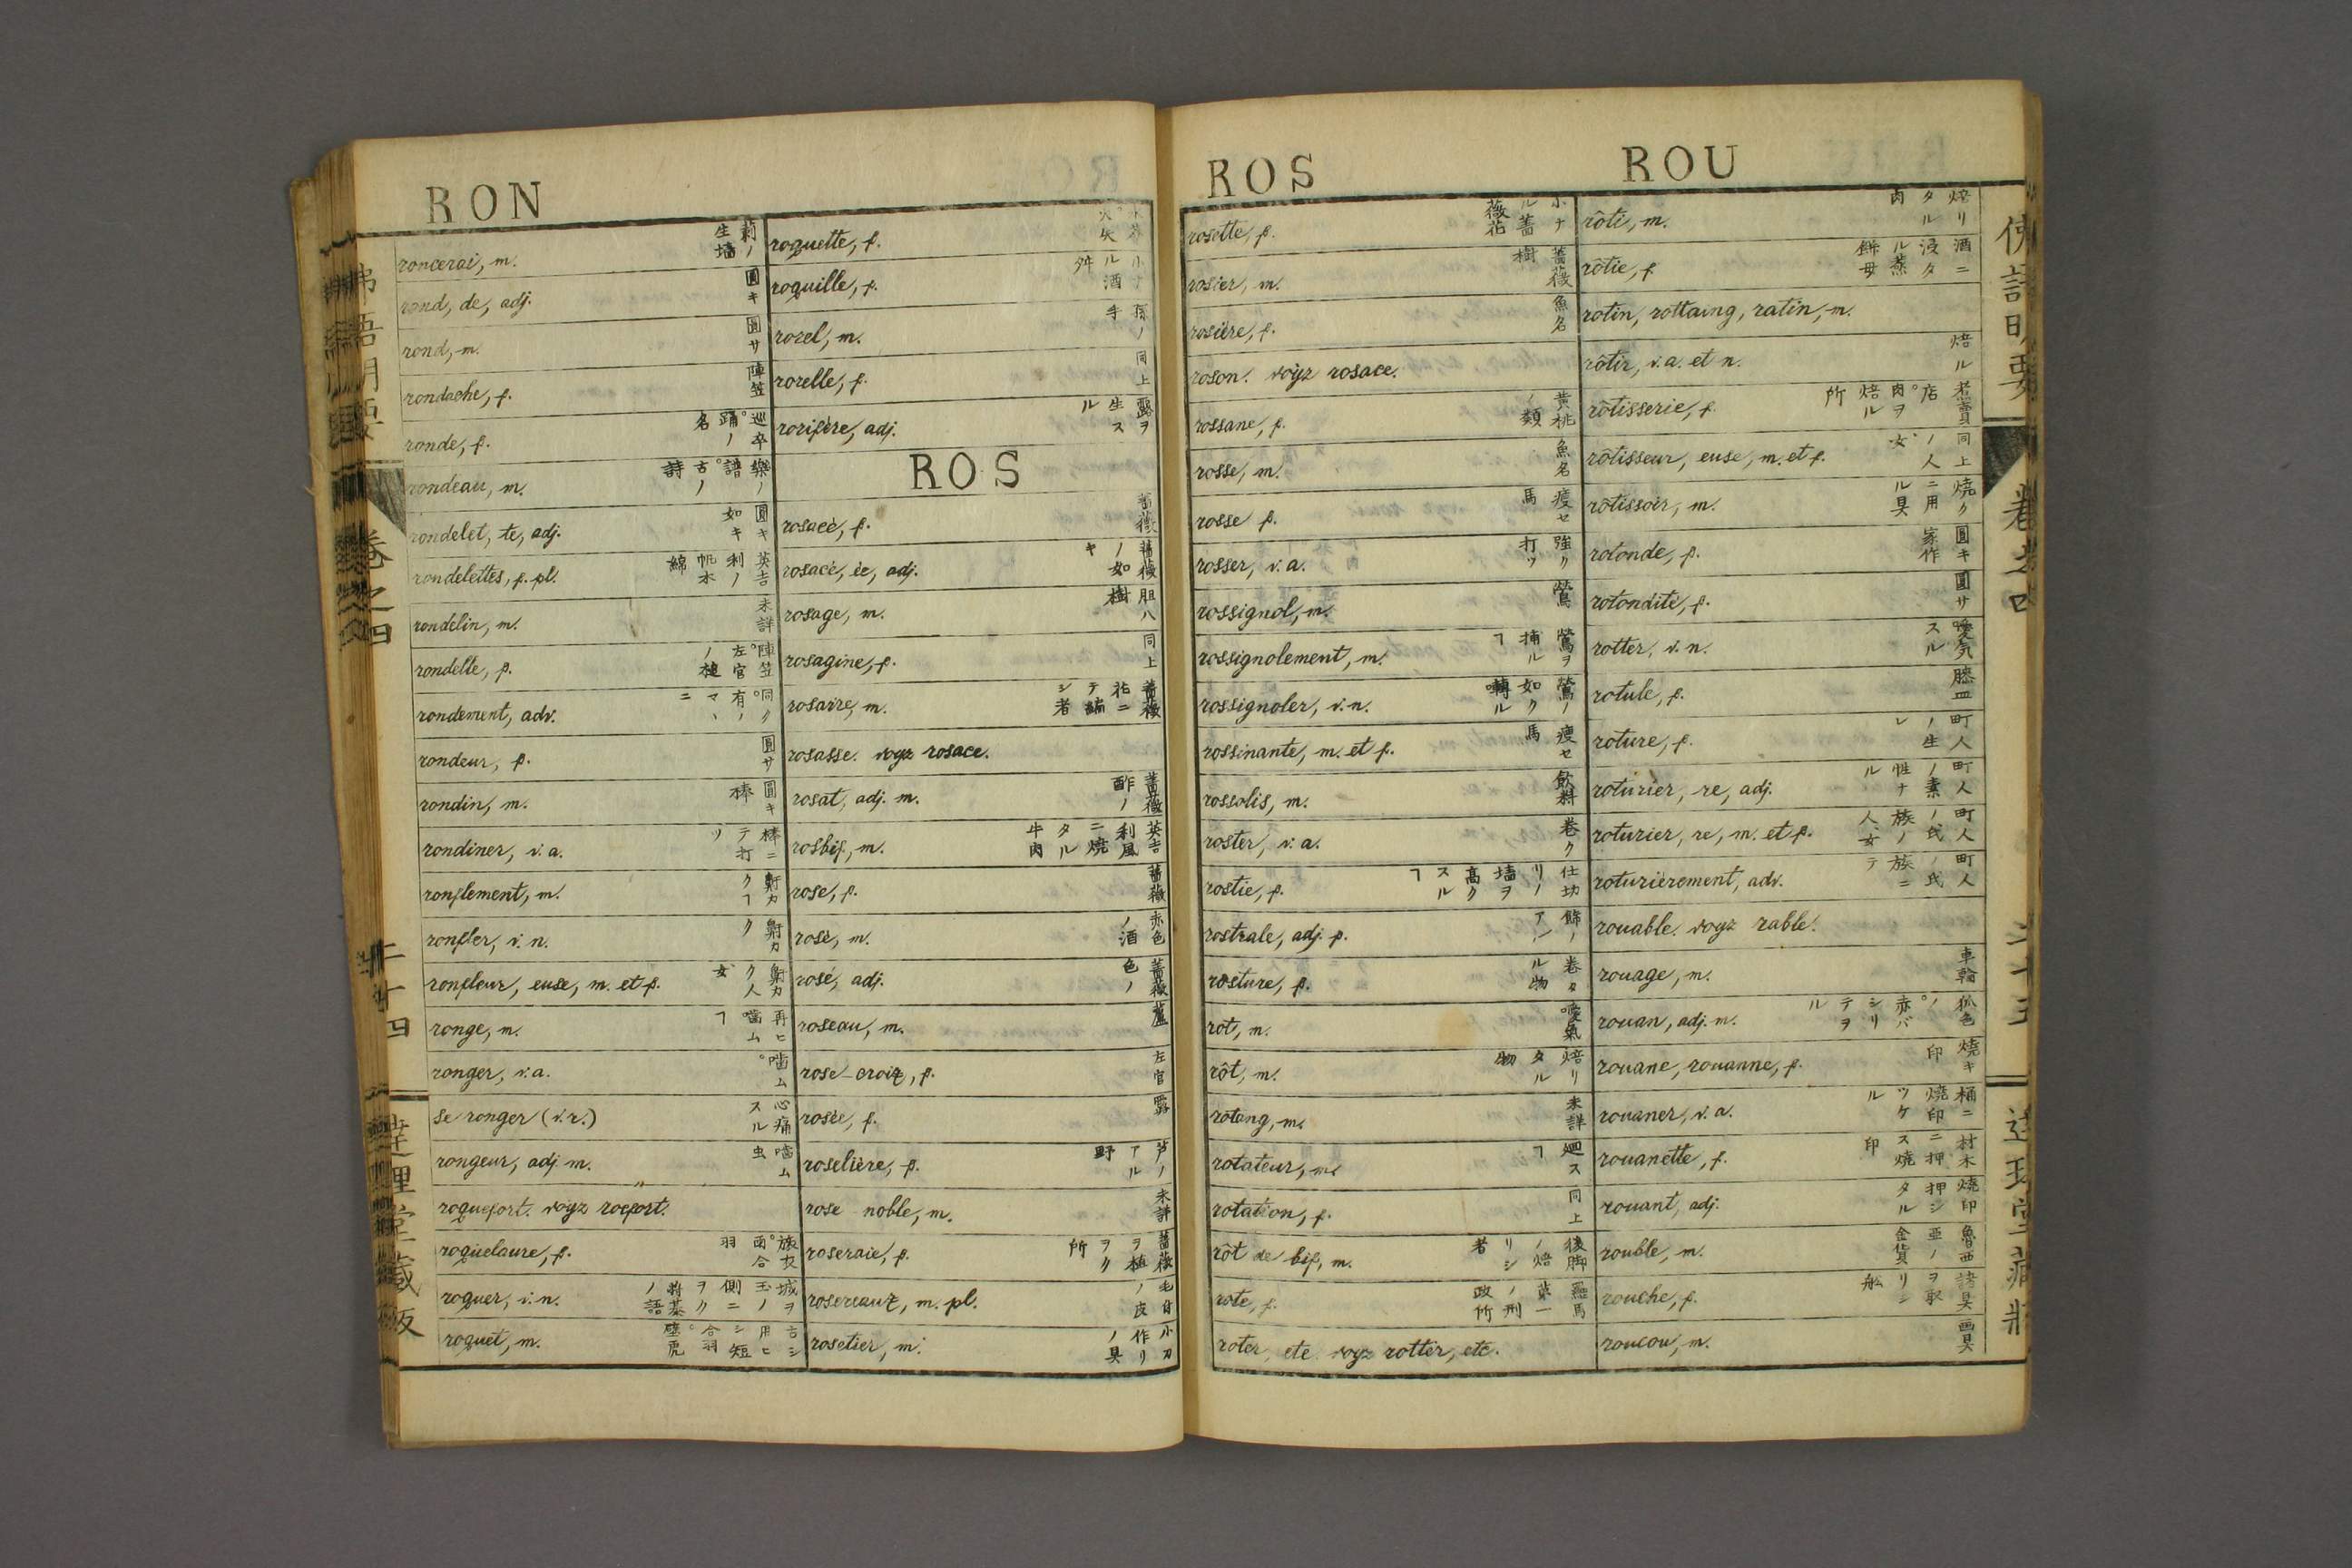 RON
roncerai, m. 荊ノ生墻
rond, de, adj. 圓キ
rond, m. 圓サ
rondache, f. 陣笠
ronde, f. 巡卒。踊ノ名
rondeau, m. 樂ノ譜。古ノ詩
rondelet, te, adj. 圓キ如キ
rondelettes, f. pl. 英吉利ノ帆木綿
rondelin, m. 未詳
rondelle, f. 陣笠。左官ノ槌
rondement, adv. 同ク。有ノマヽニ
rondeur, f. 圓サ
rondin, m. 圓キ棒
rondiner, v. a. 棒ニテ打ツ
ronflement, m. 鼾カクヿ
ronfler, v. n. 鼾カク
ronfleur, euse, m. et f. 鼾カク人女
ronge, m. 再ヒ噛ムヿ
ronger, v. a. 噛ム。
se ronger (v. r.) 心痛スル
rongeur, adj. m. 噛ム虫
roquefort. voyz rocfort.
roquelaure, f. 旅衣。雨合羽
roquer, v. n. 城ヲ王ノ側ニヲク將棊ノ語
roquet, m. 古シ用ヒシ短合羽。壁虎
roquette, f.
roquille, f. 小ナル酒舛
rorel, m.
rorelle, f. 同上
rorifère, adj. 露ヲ生スル
ROS
rosacé, f. 薔薇
rosacé, ée, adj. 薔薇ノ如キ
rosage, m. 胆八樹
rosagine, f. 同上
rosaire, m. 薔薇花ニテ編シ者
rosasse. voyz rosace.
rosat, adj. m. 薔薇ノ酢
rosbif, m. 英吉利風ニ焼タル牛肉
rose, f. 薔薇
rosé, m. 赤色ノ酒
rosé, adj. 薔薇ノ色
roseau, m. 蘆
rose-croix, f. 左官
rosée, f. 露
roselière, f. 芦ノアル野
rose noble, m. 未詳
roseraie, f. 薔薇ヲ植ヲク所
rosereaux, m. pl.
rosetier, m. 小刀作リノ具
ROS
ROU
rosette, f. 小ナル薔薇花
rosier, m. 薔薇樹
rosière, f. 魚名
roson. voyz rosace.
rossane, f. 黄桃ノ類
rosse, m. 魚名
rosse f. 瘦セ馬
rosser, v. a. 強ク打ツ
rossignol, m. 鶯
rossignolement, m. 鶯ヲ捕ルヿ
rossignoler, v. n. 鶯ノ如ク囀ル
rossinante, m. et f. 瘦セ馬
rossolis, m. 飲料
roster, v. a. 巻ク
rostie, f. 仕切リノ墻ヲ高クスルヿ
rostrale, adj. f.
rosture, f. 巻タル物
rot, m. 噯氣
rôt, m. 焙リタル物
rotang, m. 未詳
rotateur, m. 廻スヿ
rotation, f. 同上
rôt de bif, m. 後脚ノ焙リシ者
rote, f. 羅馬ノ第一ノ刑政所
roter, etc. voyz rotter, etc.
rôti, m. 焙リタル肉
rôtie, f. 酒ニ浸タル蒸餅
rotin, rottaing, ratin, m.
rôtir, v. a. et n. 焙ル
rôtisserie, f. 煮賣店。肉ヲ焙ル所
rôtisseur, euse, m. et f. 同上ノ人女
rôtissoir, m. 焼クニ用ル具
rotonde, f. 圓キ家作
rotondité, f. 圓サ
rotter, v. n. 噯気スル
rotule, f. 膝皿
roture, f. 町人ノ生レ
roturier, re, adj. 町人ノ素性ナル
roturier, re, m. et f. 町人ノ氏族ノ人女
roturièrement, adv. 町人ノ氏族ニテ
rouable. voyz rable.
rouage, m. 車輪
rouan, adj. m.
rouane, rouanne, f. 焼キ印
rouaner, v. a. 桶ニ焼印ツケル
rouanette, f. 材木ニ押ス焼印
rouant, adj. 焼印押シタル
rouble, m. 魯西亜ノ金貨
rouche, f. 諸具ヲ取リシ舩
roucou, m. 画具
佛語明要
卷之四
二十三
達理堂藏版
佛語明要
卷之四
二十四
達理堂藏版